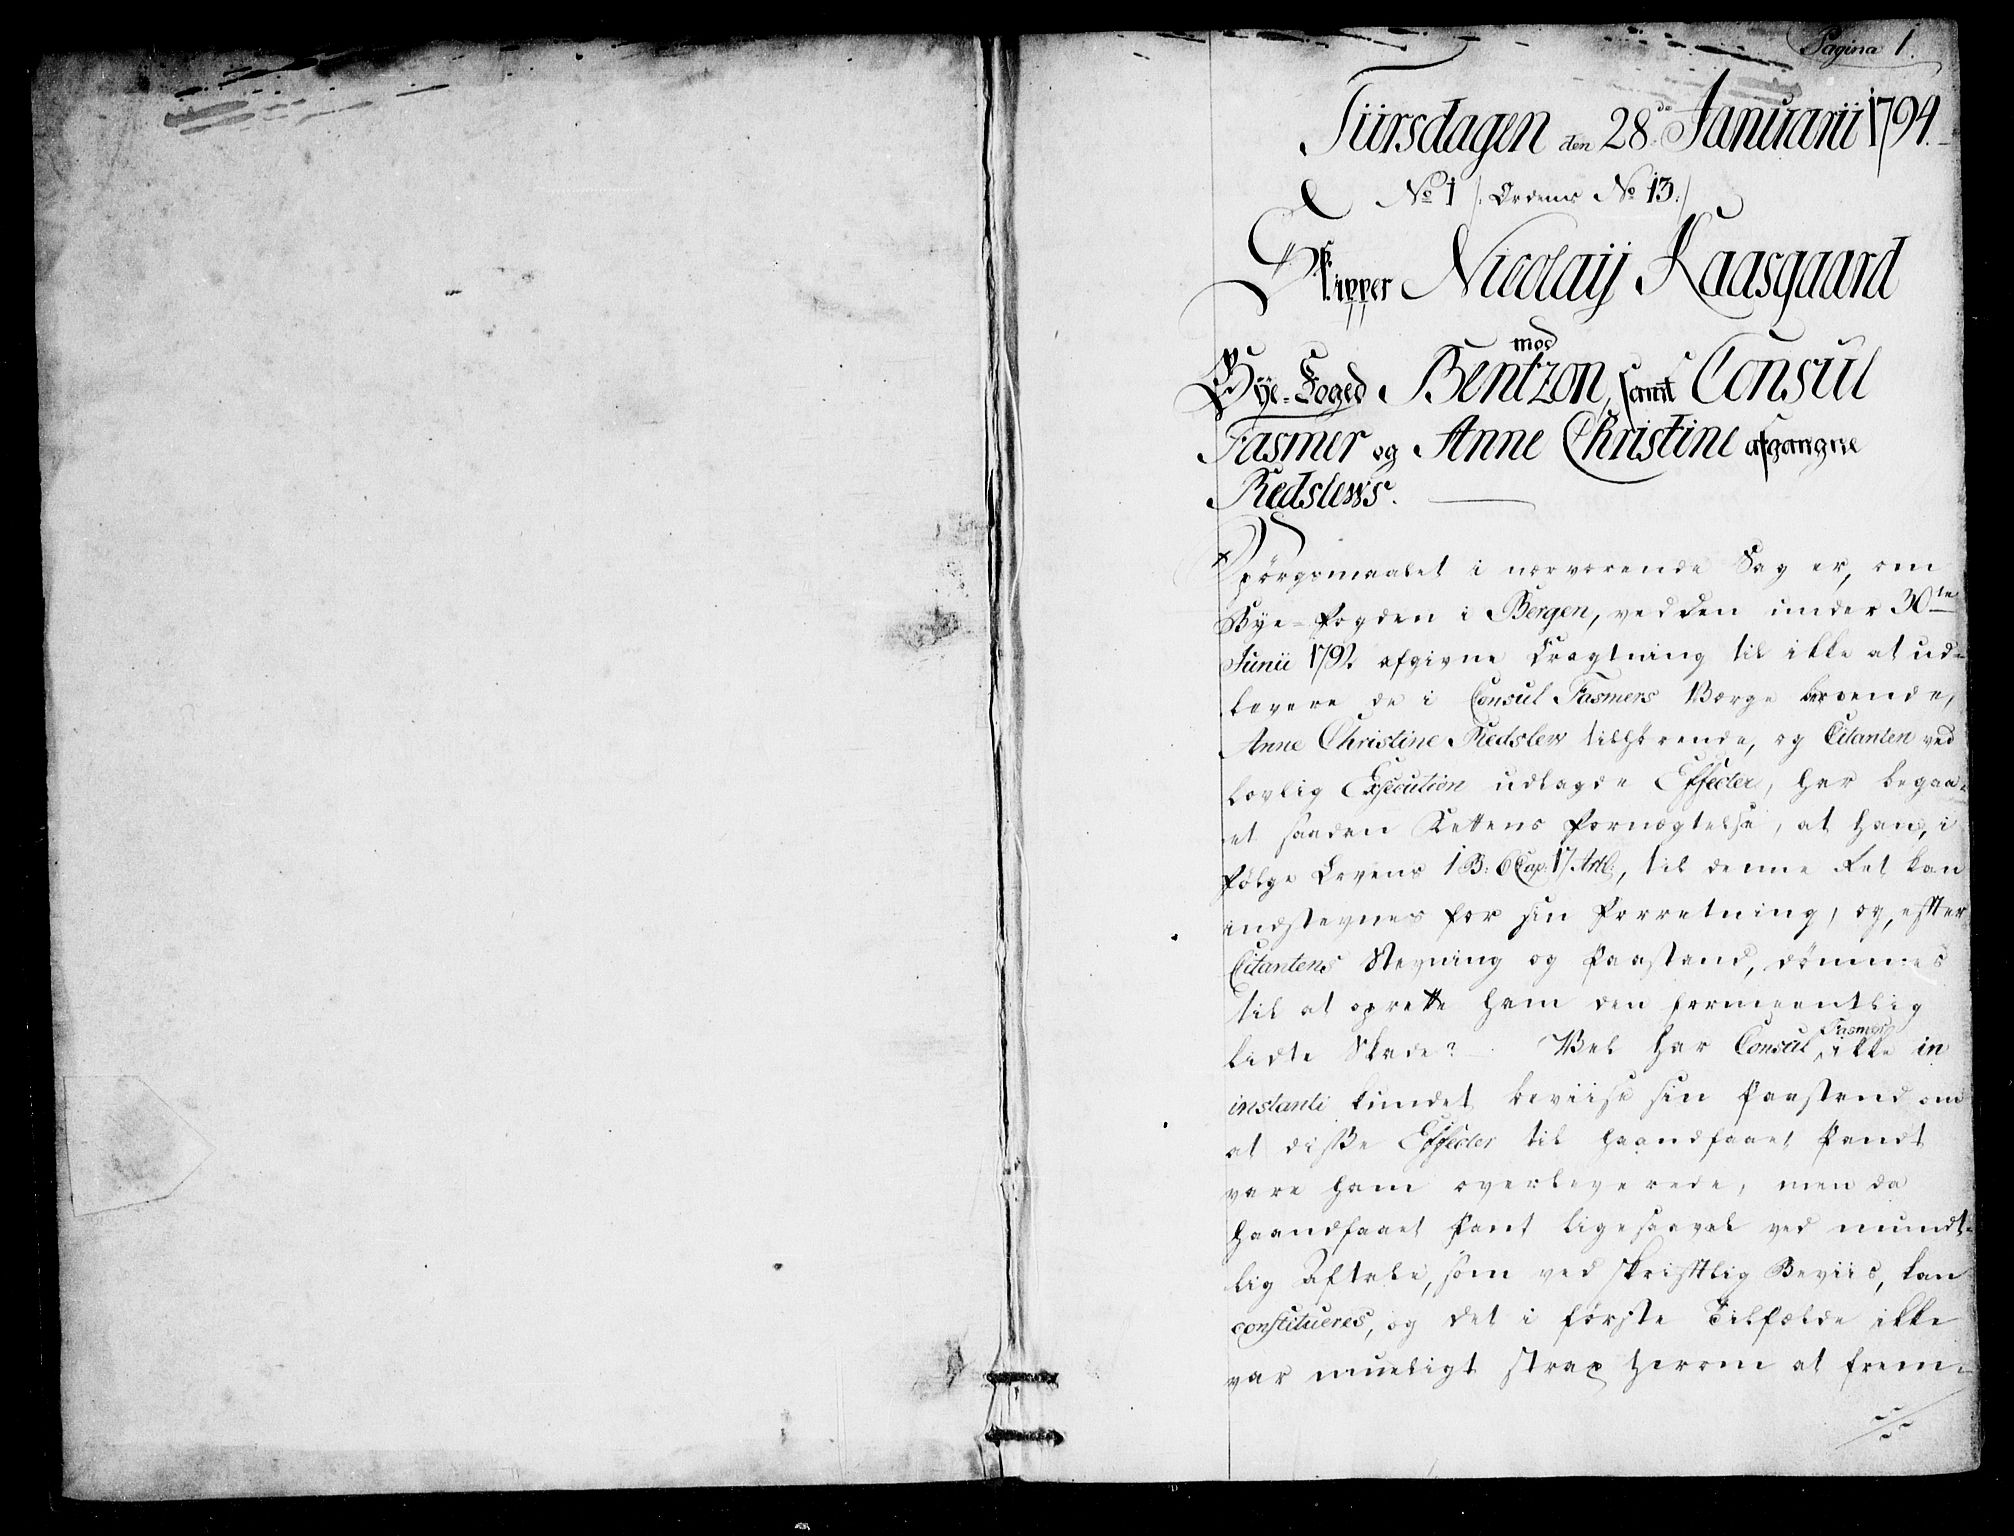 Pagina 1.
Tiirsdagen den 28de Januarii 1794.
No 1 /: Ordens No 13:/
Skipper Nicolaij Kaasgaard
mod
Bye-Foged Bentzon, samt Consul
Fasmer og Anne Christine afgangne
Redslews.
Spörgsmaalet i nærværende Sag er, om
Bye-Fogden i Bergen, ved den under 30te
Junii 1792 afgivne Kragtning til ikke at ud-
levere de i Consul Fasmers Værge beroende,
Anne Christine Redslew tilhörende, og Citanten ved
lovlig Execution udlagde Effecter, har begaa-
et saaden Rettens Fornægtelse, at han, i
Fölge Lovens 1 B: 6 Cap: 17 Artl:, til denne Ret kan
indstevnes for sin Forretning, og, efter
Citantens Stevning og Paastand, dömmes
til at oprette ham den formeentlig
lidte Skade? Vel har Consul Fasmer ikke in
instanti kundet beviise sin Paastand om
at disse Effecter til haandfaaet Pandt
vare ham overleverede, men da
haandfaaet Pant ligesaavel ved mundt-
lig Aftale, som ved skriftlig Beviis, kan
constitueres, og det i förste Tilfælde ikke
var mueligt strax herom at frem-